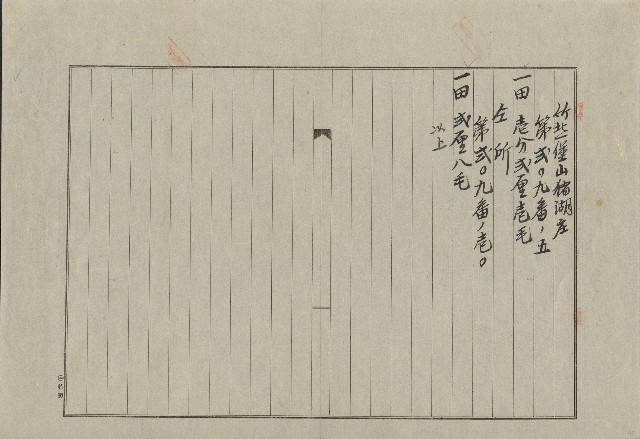 竹北堡山猪湖庄
第弐〇九番ノ五
一田 壱分弐厘壱毛
仝所
第弐〇九番ノ壱〇
一田 弐厘八毛
以上